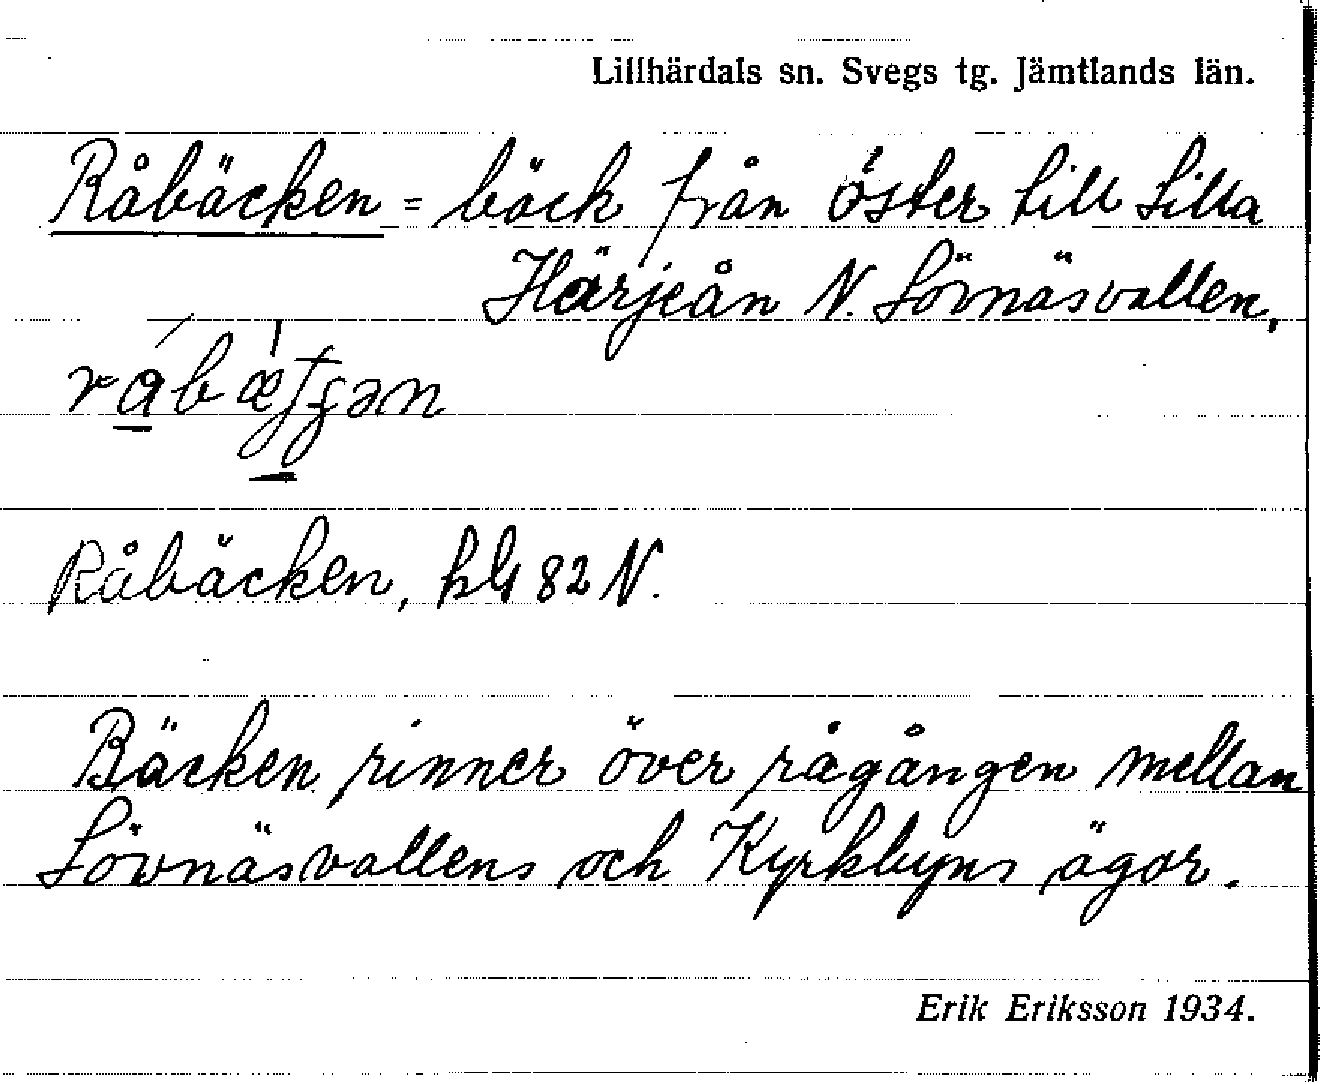 Lillhärdals sn. Svegs tg. Jämtlands län.
Råbäcken = bäck från öster till Lilla
Härjeån N. Lövnäsvallen,
Råbäcken, kbl 82 N.
Bäcken rinner över rågången mellan
Lövnäsvallens och Kyrkbyns ägor.
Erik Eriksson 1934.